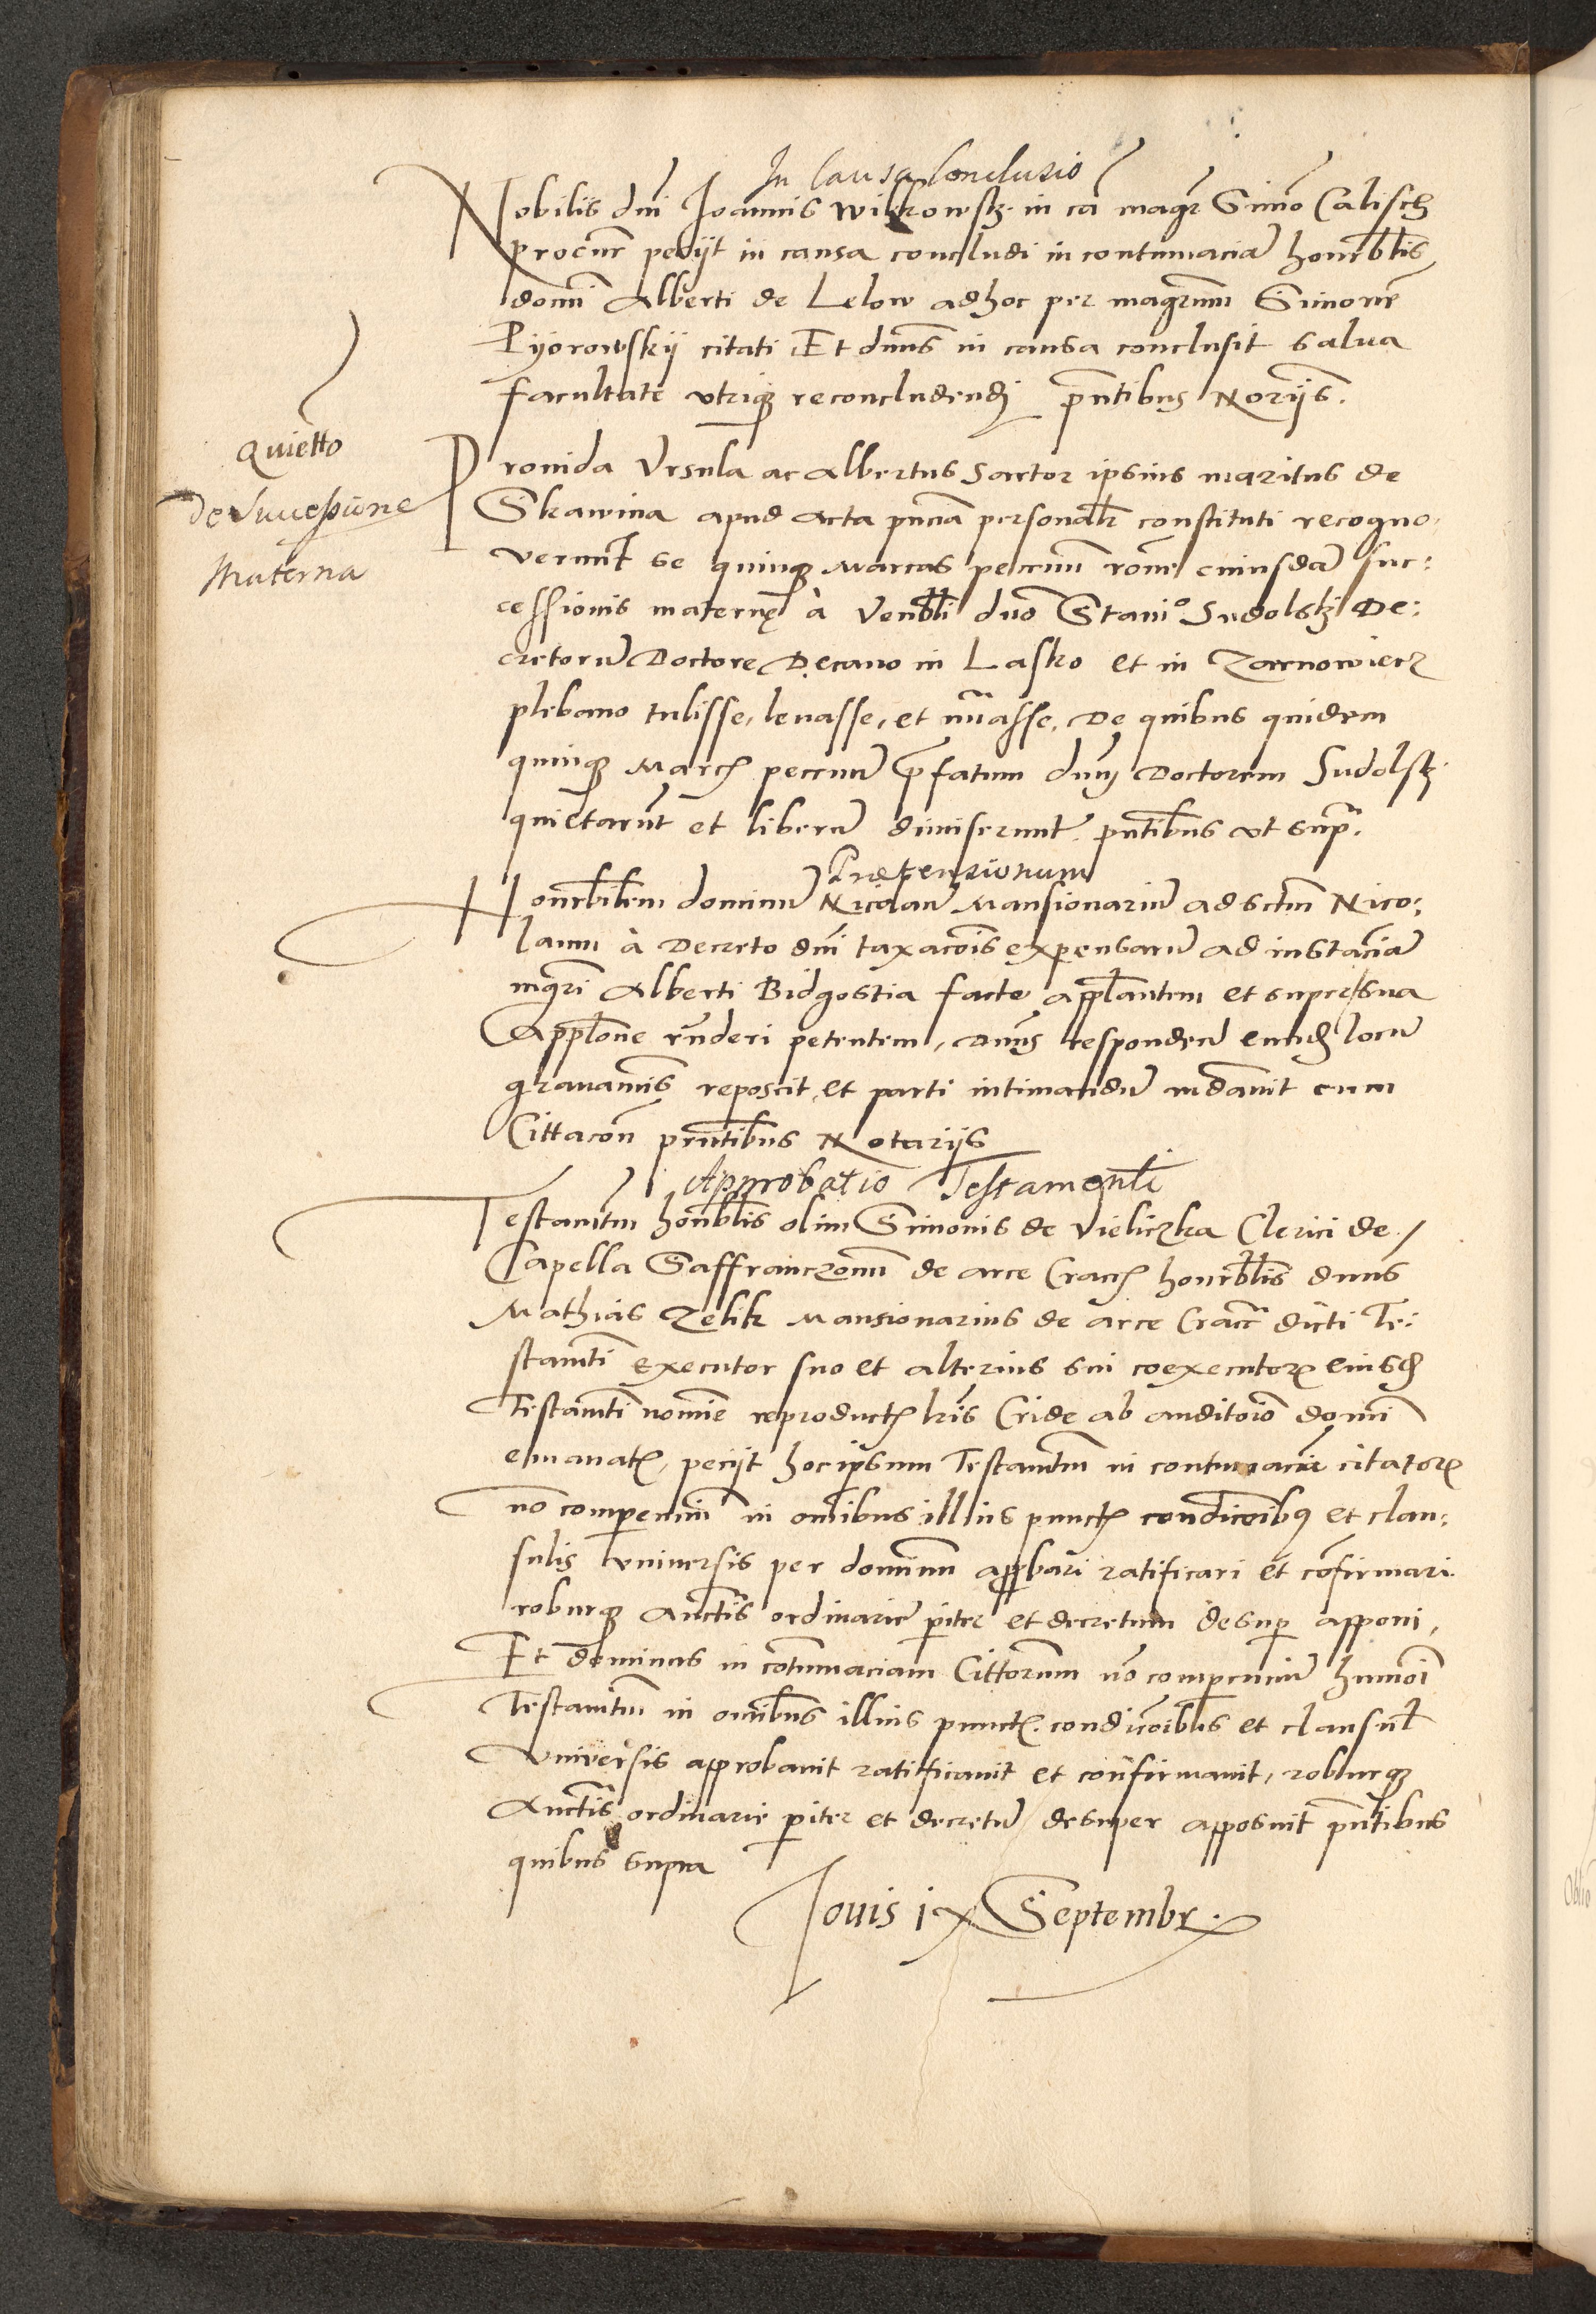 In Causa Conclusio
Nobilis dni Joannis Wilkowsk in ca magr Simo Calisch
procur petijt in causa concludi in contumacia honrblis
domi Alberti de Lelow adhoc per magrum Simone
Pijorowskij citati Et dnus in causa conclusit salua
facultate vtriq reconcludendj pntibus Norijs.
Quietto
De Successione
Materna
Prouida Vrsula ac Albertus Sartor ipsius maritus de
Skawina apud acta pncia personalr constituti recogno,
verunt se quinq Marcas peccunu rone cuiusda suc:
cessionis maternę à Venbli dno Stanio Sudolskj De:
cretoru Doctore Decano in Lasko et in Zarnowiecz
plebano tulisse, leuasse, et nuasse, De quibus quidem
quinq March peccunu pfatum dnum Doctorem Sudolsk
quietarut et liberu dimiserunt pntibus vt supr.
Expensionum
Honrbilem dominu Nicolau Mansionariu ad sctum Nico:
laum à Decreto dni taxacois expensaru ad instacia
mgri Alberti Bidgostia facte applantem et super sua
Applone rnderi petentem, Dnus respondendu eunde locu
grauamis reposcit, et parti intimandu mdauit cum
Cittacon pntibus Notarijs
Approbatio Testamenti
Testamtum honrblis olim Simonis de Vieliczka Clerici de
Capella Saffranczonum de arce Crach honrblis dnus
Mathias Zelik Mansionarius de arce Cracr dicti Te:
stamti executor suo et alterius sui coexecutor eiusd
Testamti nomie reproductis lris Cride ab auditoio domi
emanatis, petijt hoc ipsum Testamtum in contumacia citator
no comperenium in omibus illius punctis condicoibus et clau,
sulis vniuersis per dominum apprbari ratificari et confirmari
roburq Auctis ordinarie piter et decretum desup apponi,
Et dominus in contumaciam Cittorum no comperenium humoi
Testamtum in omibus illius punctis condicoibus et clausul
Vniuersis approbauit ratificauit et confirmauit, roburq
Auctis ordinarie piter et decretu desuper apposuit pntibus
quibus supra
Jouis ix Septembr.